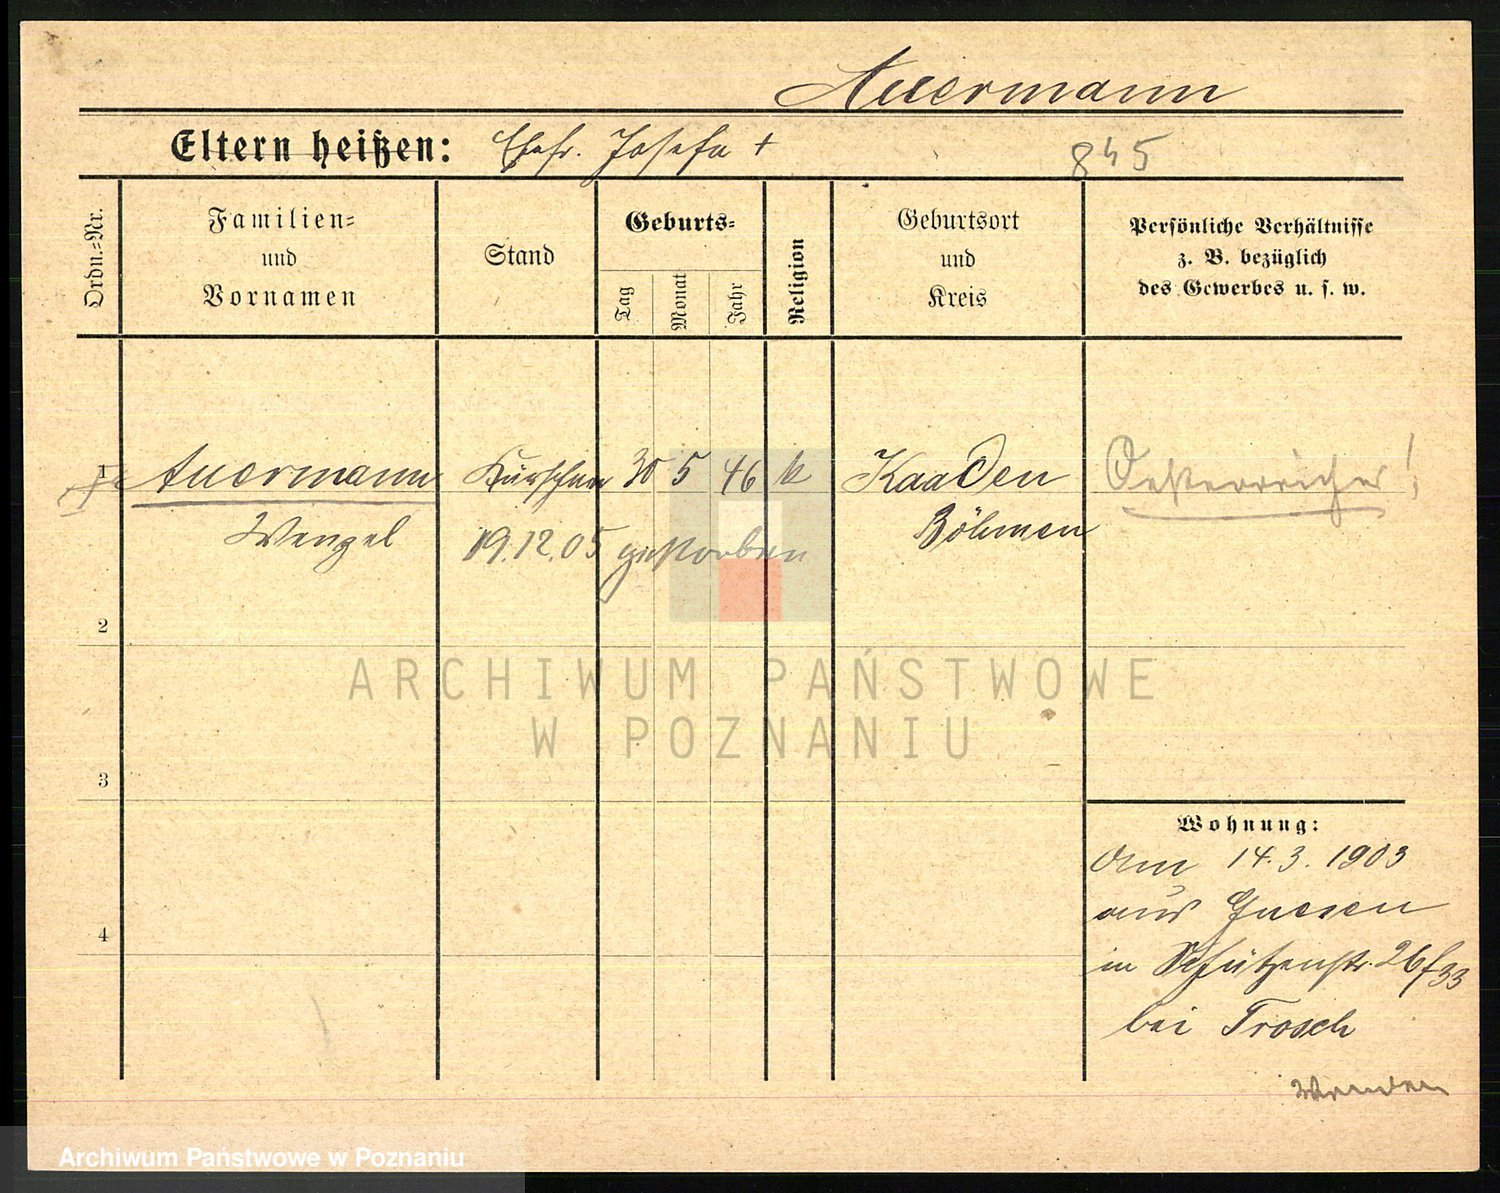 Auermann
Eltern heißen: Ehefr. Josefa +
845
Ordn.=Nr.
Familien=
und
Vornamen
Stand
Geburts=
Tag
Monat
Jahr
Religion
Geburtsort
und
Kreis
Persönliche Verhältnisse
z. B. bezüglich
des Gewerbes u. s. w.
1 Auermann Kürschner 30 5 46 k Kaaden Oesterreicher!
Wenzel 19.12.05 gestorben Böhmen
2
3
4
Wohnung:
Am 14.3.1903
aus Gnesen
in Schützenstr. 26/33
bei Trosch
Wenden
ARCHIWUM PAŃSTWOWE
W POZNANIU
Archiwum Państwowe w Poznaniu